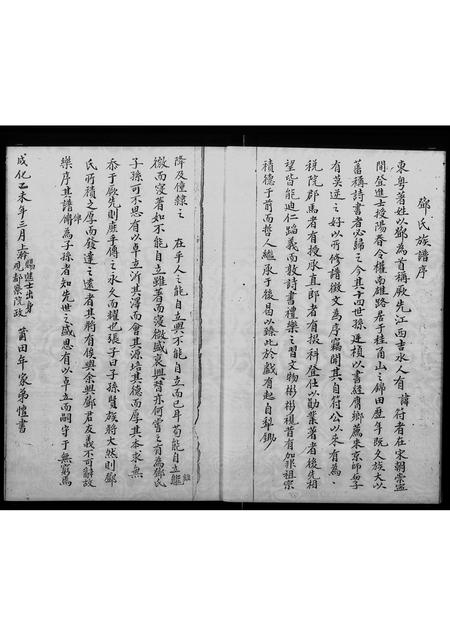 鄧氏族譜序
東粵著姓以鄧為首稱厥先江西吉水人有諱符者在宋朝崇寧
間登進士授陽春令權南雄路居于桂角山之錦田歷年既久族大以
蕃稱詩書者必歸之今其十四世孫廷楨以書經膺鄉薦來京師與予
有莫逆之好以所修譜徵文為序竊聞其自符公以來有為
稅院郡馬者有授承直郎者有擢科登仕以勛業著者後先相
望皆能迪仁蹈義而敦詩書禮樂之習文物彬彬視昔有加非祖宗
積德于前而哲人繼承于後曷以臻此於戲有起自犁鋤
降及僮隸之 在乎人之能自立與不能自立而已耳苟能自立雖
微而寖著如不能自立雖著而寖微盛衰興替亦何常之有為鄧氏
子孫可不思有以卓立沂其潯而會其源培其德而厚其本求無
忝于厥先則庶乎傳之永久而耀也張子曰子孫賢族將大然則鄧
氏所積之厚而發達之遠者其將有俟與余與鄧君友義不可辭故
樂序其譜俾傳為子孫者知先世之盛思有以卓立而嗣守于無窮焉
成化乙未年三月上澣賜進士出身觀都察院政莆田年家弟愷書